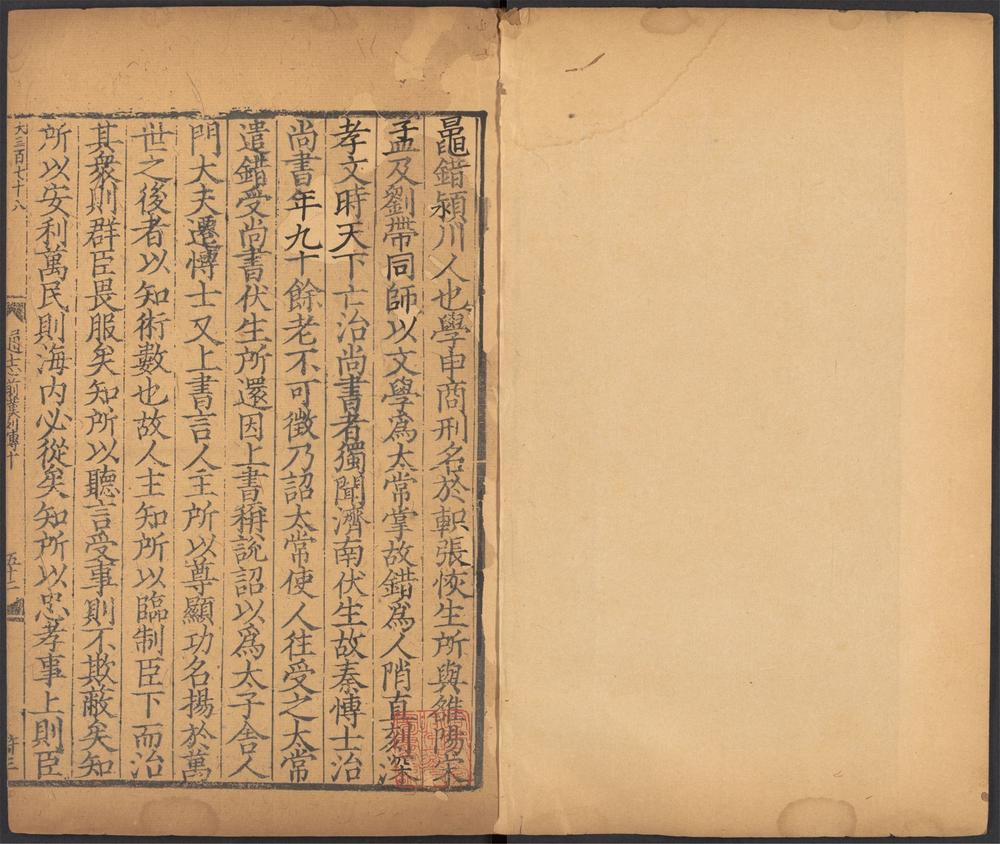 鼂錯潁川人也學申商刑名於軹張恢生所與雒陽宋
孟及劉帶同師以文學爲太常掌故錯爲人陗直刻深
孝文時天下亡治尚書者獨聞濟南伏生故秦博士治
尚書年九十餘老不可徵乃詔太常使人往受之太常
遣錯受尚書伏生所還因上書稱說詔以爲太子舍人
門大夫遷博士又上書言人主所以尊顯功名揚於萬
世之後者以知術數也故人主知所以臨制臣下而治
其衆則群臣畏服矣知所以聽言受事則不欺蔽矣知
所以安利萬民則海内必從矣知所以忠孝事上則臣
大三百七十八
通志前漢列傳十
五十二